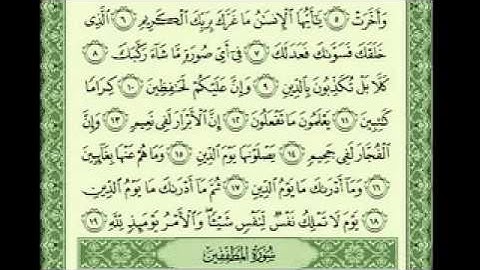 وَأَخَّرَتْ ۝٥ يَٰٓأَيُّهَا ٱلْإِنسَٰنُ مَا غَرَّكَ بِرَبِّكَ ٱلْكَرِيمِ ۝٦ ٱلَّذِى
خَلَقَكَ فَسَوَّىٰكَ فَعَدَلَكَ ۝٧ فِىٓ أَىِّ صُورَةٍ مَّا شَآءَ رَكَّبَكَ ۝٨
كَلَّا بَلْ تُكَذِّبُونَ بِٱلدِّينِ ۝٩ وَإِنَّ عَلَيْكُمْ لَحَٰفِظِينَ ۝١٠ كِرَامًا
كَٰتِبِينَ ۝١١ يَعْلَمُونَ مَا تَفْعَلُونَ ۝١٢ إِنَّ ٱلْأَبْرَارَ لَفِى نَعِيمٍ ۝١٣ وَإِنَّ
ٱلْفُجَّارَ لَفِى جَحِيمٍ ۝١٤ يَصْلَوْنَهَا يَوْمَ ٱلدِّينِ ۝١٥ وَمَا هُمْ عَنْهَا بِغَآئِبِينَ
۝١٦ وَمَآ أَدْرَىٰكَ مَا يَوْمُ ٱلدِّينِ ۝١٧ ثُمَّ مَآ أَدْرَىٰكَ مَا يَوْمُ ٱلدِّينِ
۝١٨ يَوْمَ لَا تَمْلِكُ نَفْسٌ لِّنَفْسٍ شَيْـًٔا وَٱلْأَمْرُ يَوْمَئِذٍ لِّلَّهِ ۝١٩
سُورَةُ ٱلْمُطَفِّفِينَ